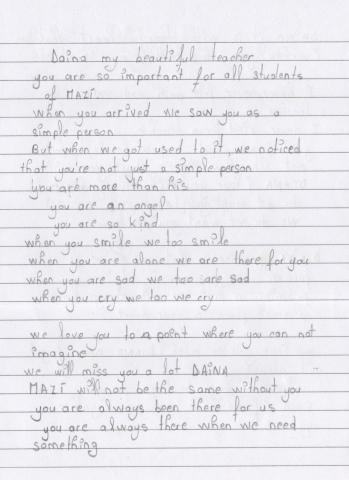 Daina my beautiful teacher
you are so important for all students
of MAZÍ.
when you arrived we saw you as a
simple person
But when we got used to it, we noticed
that you're not just a simple person
you are more than his
you are an angel
you are so kind
when you smile we too smile
when you are alone we are there for you
when you are sad we too are sad
when you cry we too we cry
we love you to a point where you can not
imagine
we will miss you a lot DAINA
MAZÍ will not be the same without you
you are always been there for us
you are always there when we need
something